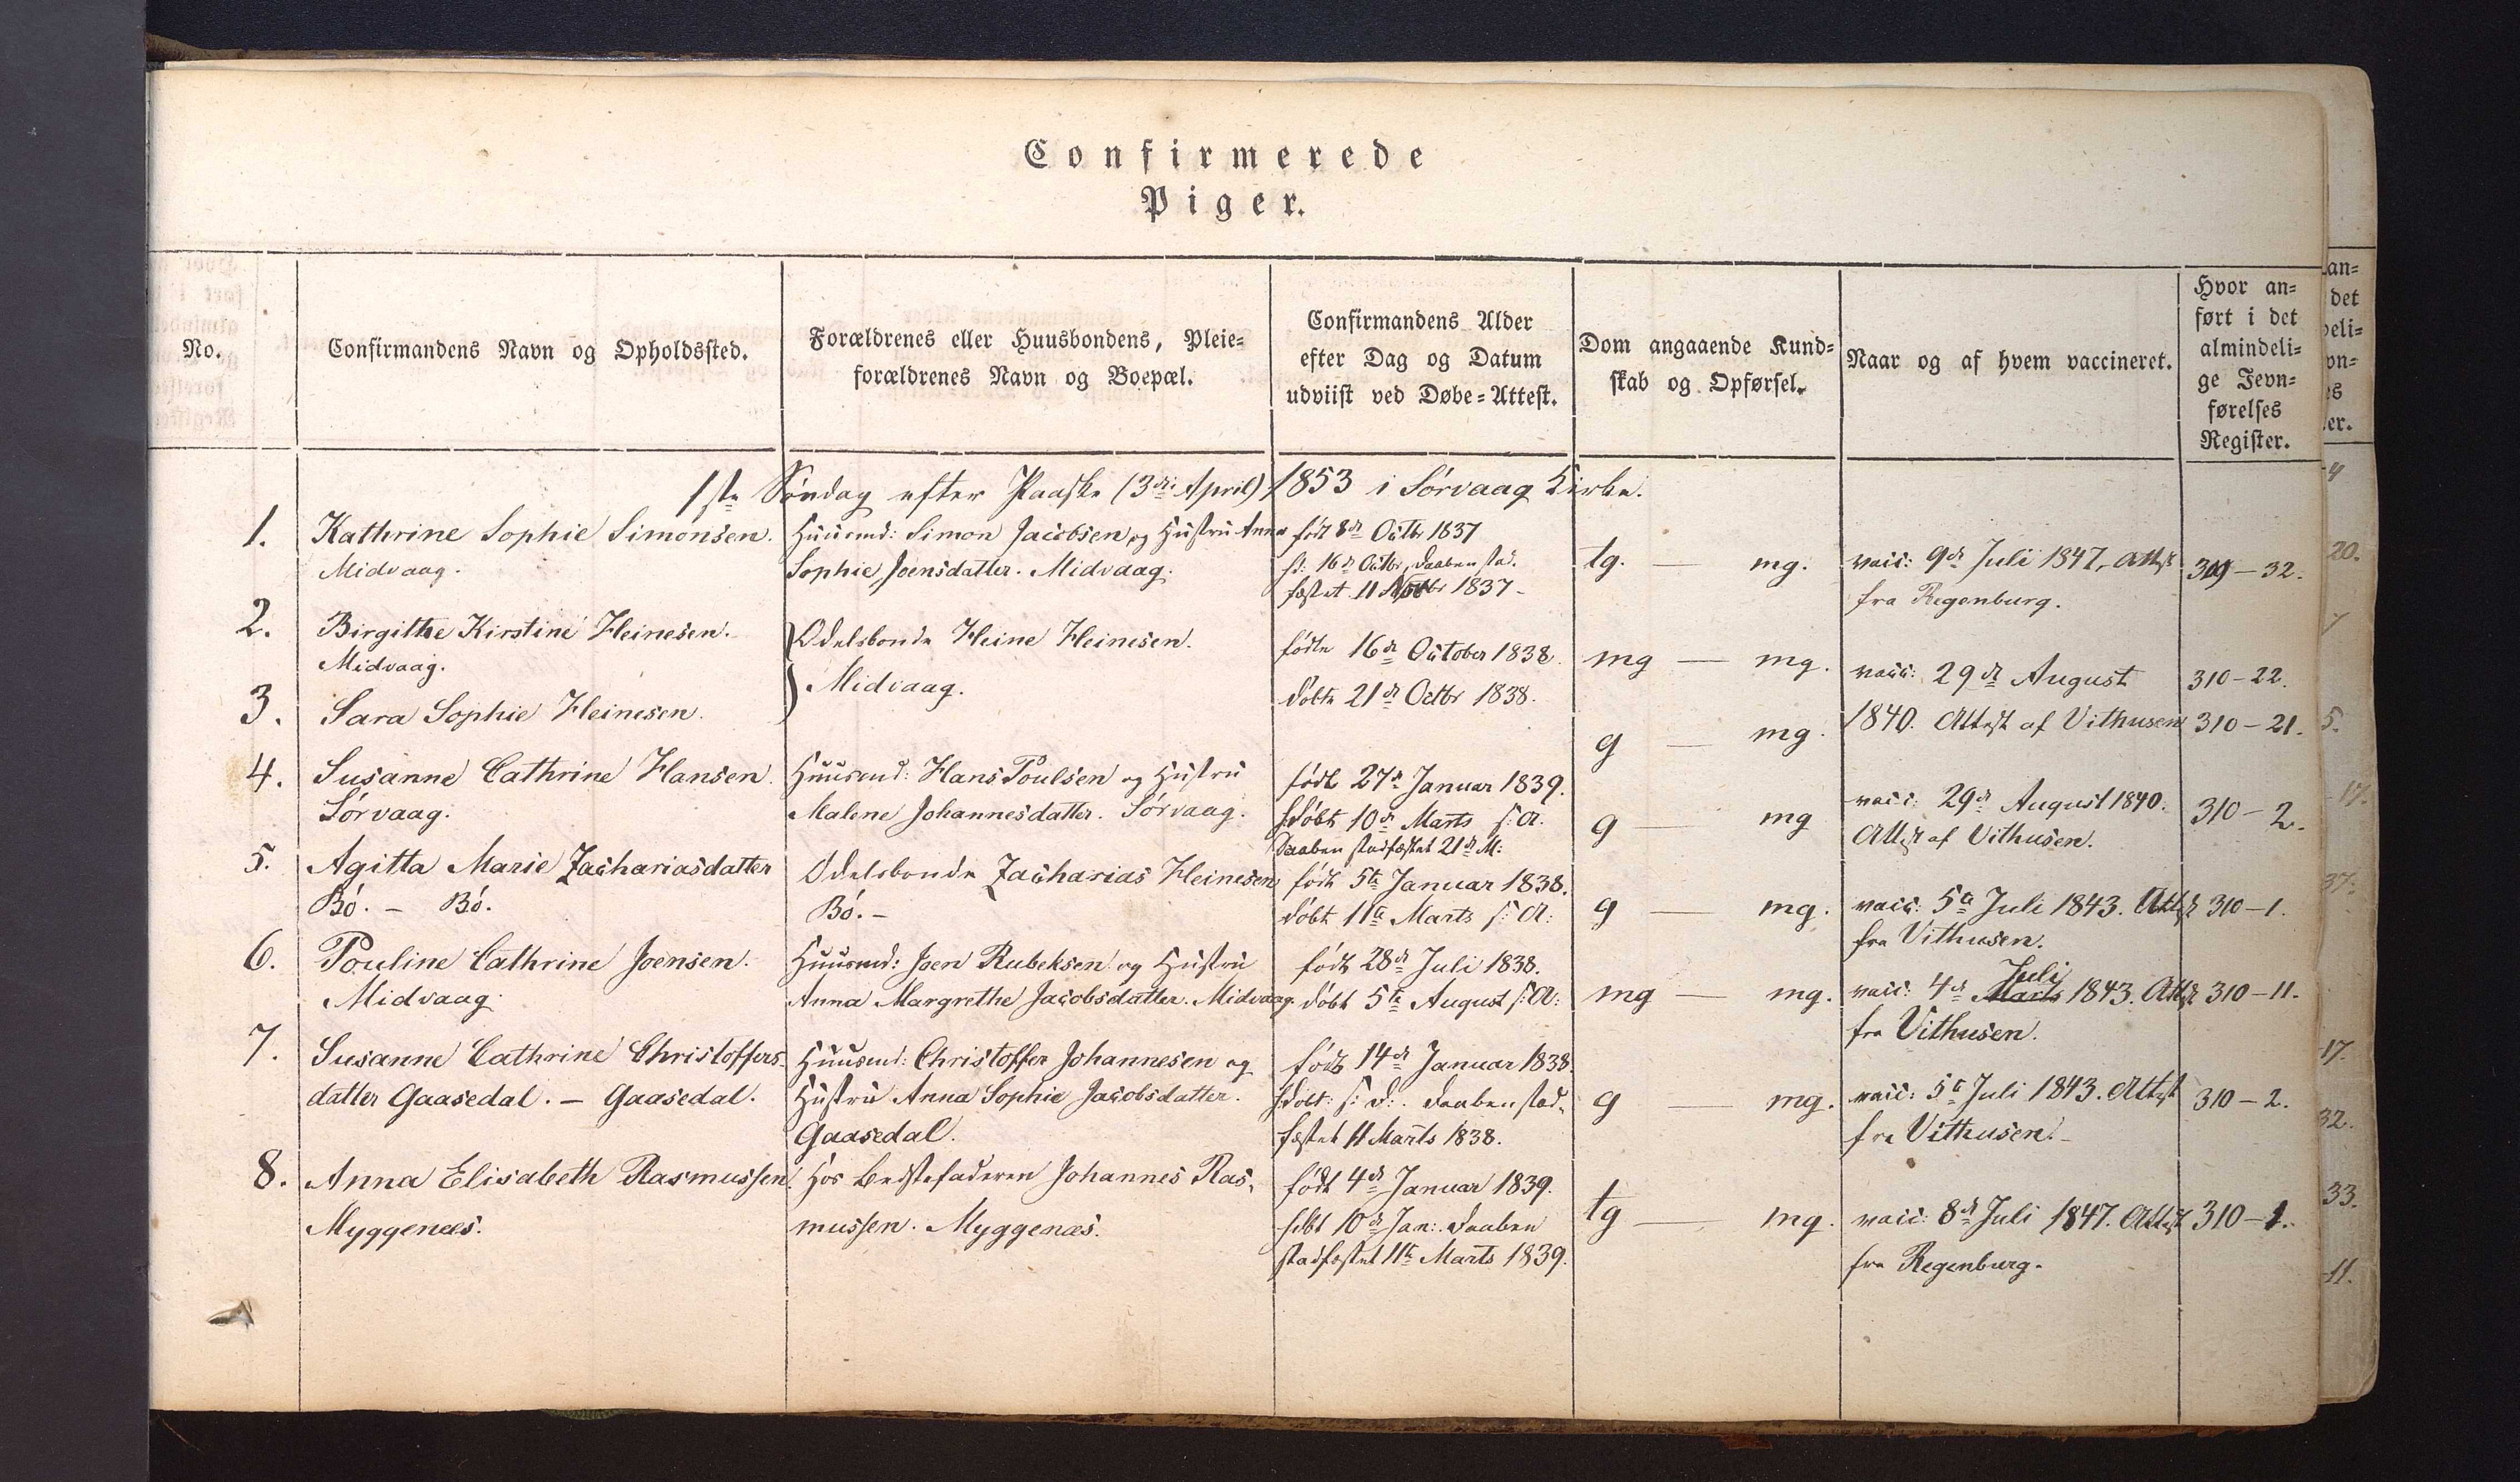 Confirmerede
Piger.
No.
Confirmandens Navn og Opholdssted.
Forældrenes eller Huusbondens, Pleie=
forældrenes Navn og Boepæl.
Confirmandens Alder
efter Dag og Datum
udviist ved Døbe=Attest.
Dom angaaende Kund=
skab og Opførsel.
Naar og af hvem vaccineret.
Hvor an=
ført i det
almindeli=
ge Jevn=
førelses
Register.
1ste Søndag efter Paaske (3die April) 1853 i Sørvaag Kirke.
1.
Kathrine Sophie Simonsen.
Midvaag.
Huusmd: Simon Jacobsen og Hustru Anna
Sophie Joensdatter. Midvaag.
født 8de Octbr 1837
16de Octbr, Daaben stad-
fæstet 11 Novbr 1837-
tg. — mg.
vacc: 9de Juli 1847, Attest
fra Regenburg.
309-32.
2.
Birgithe Kirstine Heinesen.
Midvaag.
Odelsbonde Heine Heinesen.
Midvaag.
fødte 16de October 1838.
døbte 21de Octbr 1838.
mg — mg.
vacc: 29de August
310-22.
3.
Sara Sophie Heinesen.
g — mg.
1840. Attest af Vithusen
310-21.
4.
Susanne Cathrine Hansen.
Sørvaag.
Huusmd: Hans Poulsen og Hustru
Malene Johannesdatter. Sørvaag.
født 27de Januar 1839.
hdøbt 10de Marts s: A.
Daaben stadfæstet 21de M:
g — mg
vacc: 29de August 1840.
Attest af Vithusen.
310-2.
5.
Agitta Marie Zachariasdatter
Bø. - Bø.
Odelsbonde Zacharias Heinesen
Bø. -
født 5te Januar 1838.
døbt 11te Marts s: A:
g — mg.
vacc: 5te Juli 1843. Attest
fra Vithusen.
310-1.
6.
Pouline Cathrine Joensen.
Midvaag.
Huusmd: Joen Rubeksen og Hustru
Anna Margrethe Jacobsdatter. Midvaag.
født 28de Juli 1838.
døbt 5te August s: A:
mg — mg.
Juli
vacc: 4de Marts 1843. Attest
fra Vithusen.
310-11.
7.
Susanne Cathrine Christoffers-
datter Gaasedal. - Gaasedal.
Huusmd: Christoffer Johannesen og
Hustru Anna Sophie Jacobsdatter.
Gaasedal.
født 14de Januar 1838.
hdøbt: s: D:. Daaben stad-
fæstet 11 Marts 1838.
g — mg.
vacc: 5te Juli 1843. Attest
fra Vithusen.-
310-2.
8.
Anna Elisabeth Rasmussen.
Myggenæs.
Hos Bedstefaderen Johannes Ras-
mussen. Myggenæs.
født 4de Januar 1839.
10de Jan: Daaben
stadfæstet 11te Marts 1839.
tg — mg.
vacc: 8de Juli 1847. Attest
fra Regenburg.
310-1.
an=
det
eli=
vn=
es
er.
4
20.
5.
17.
37.
17.
32.
33.
11.